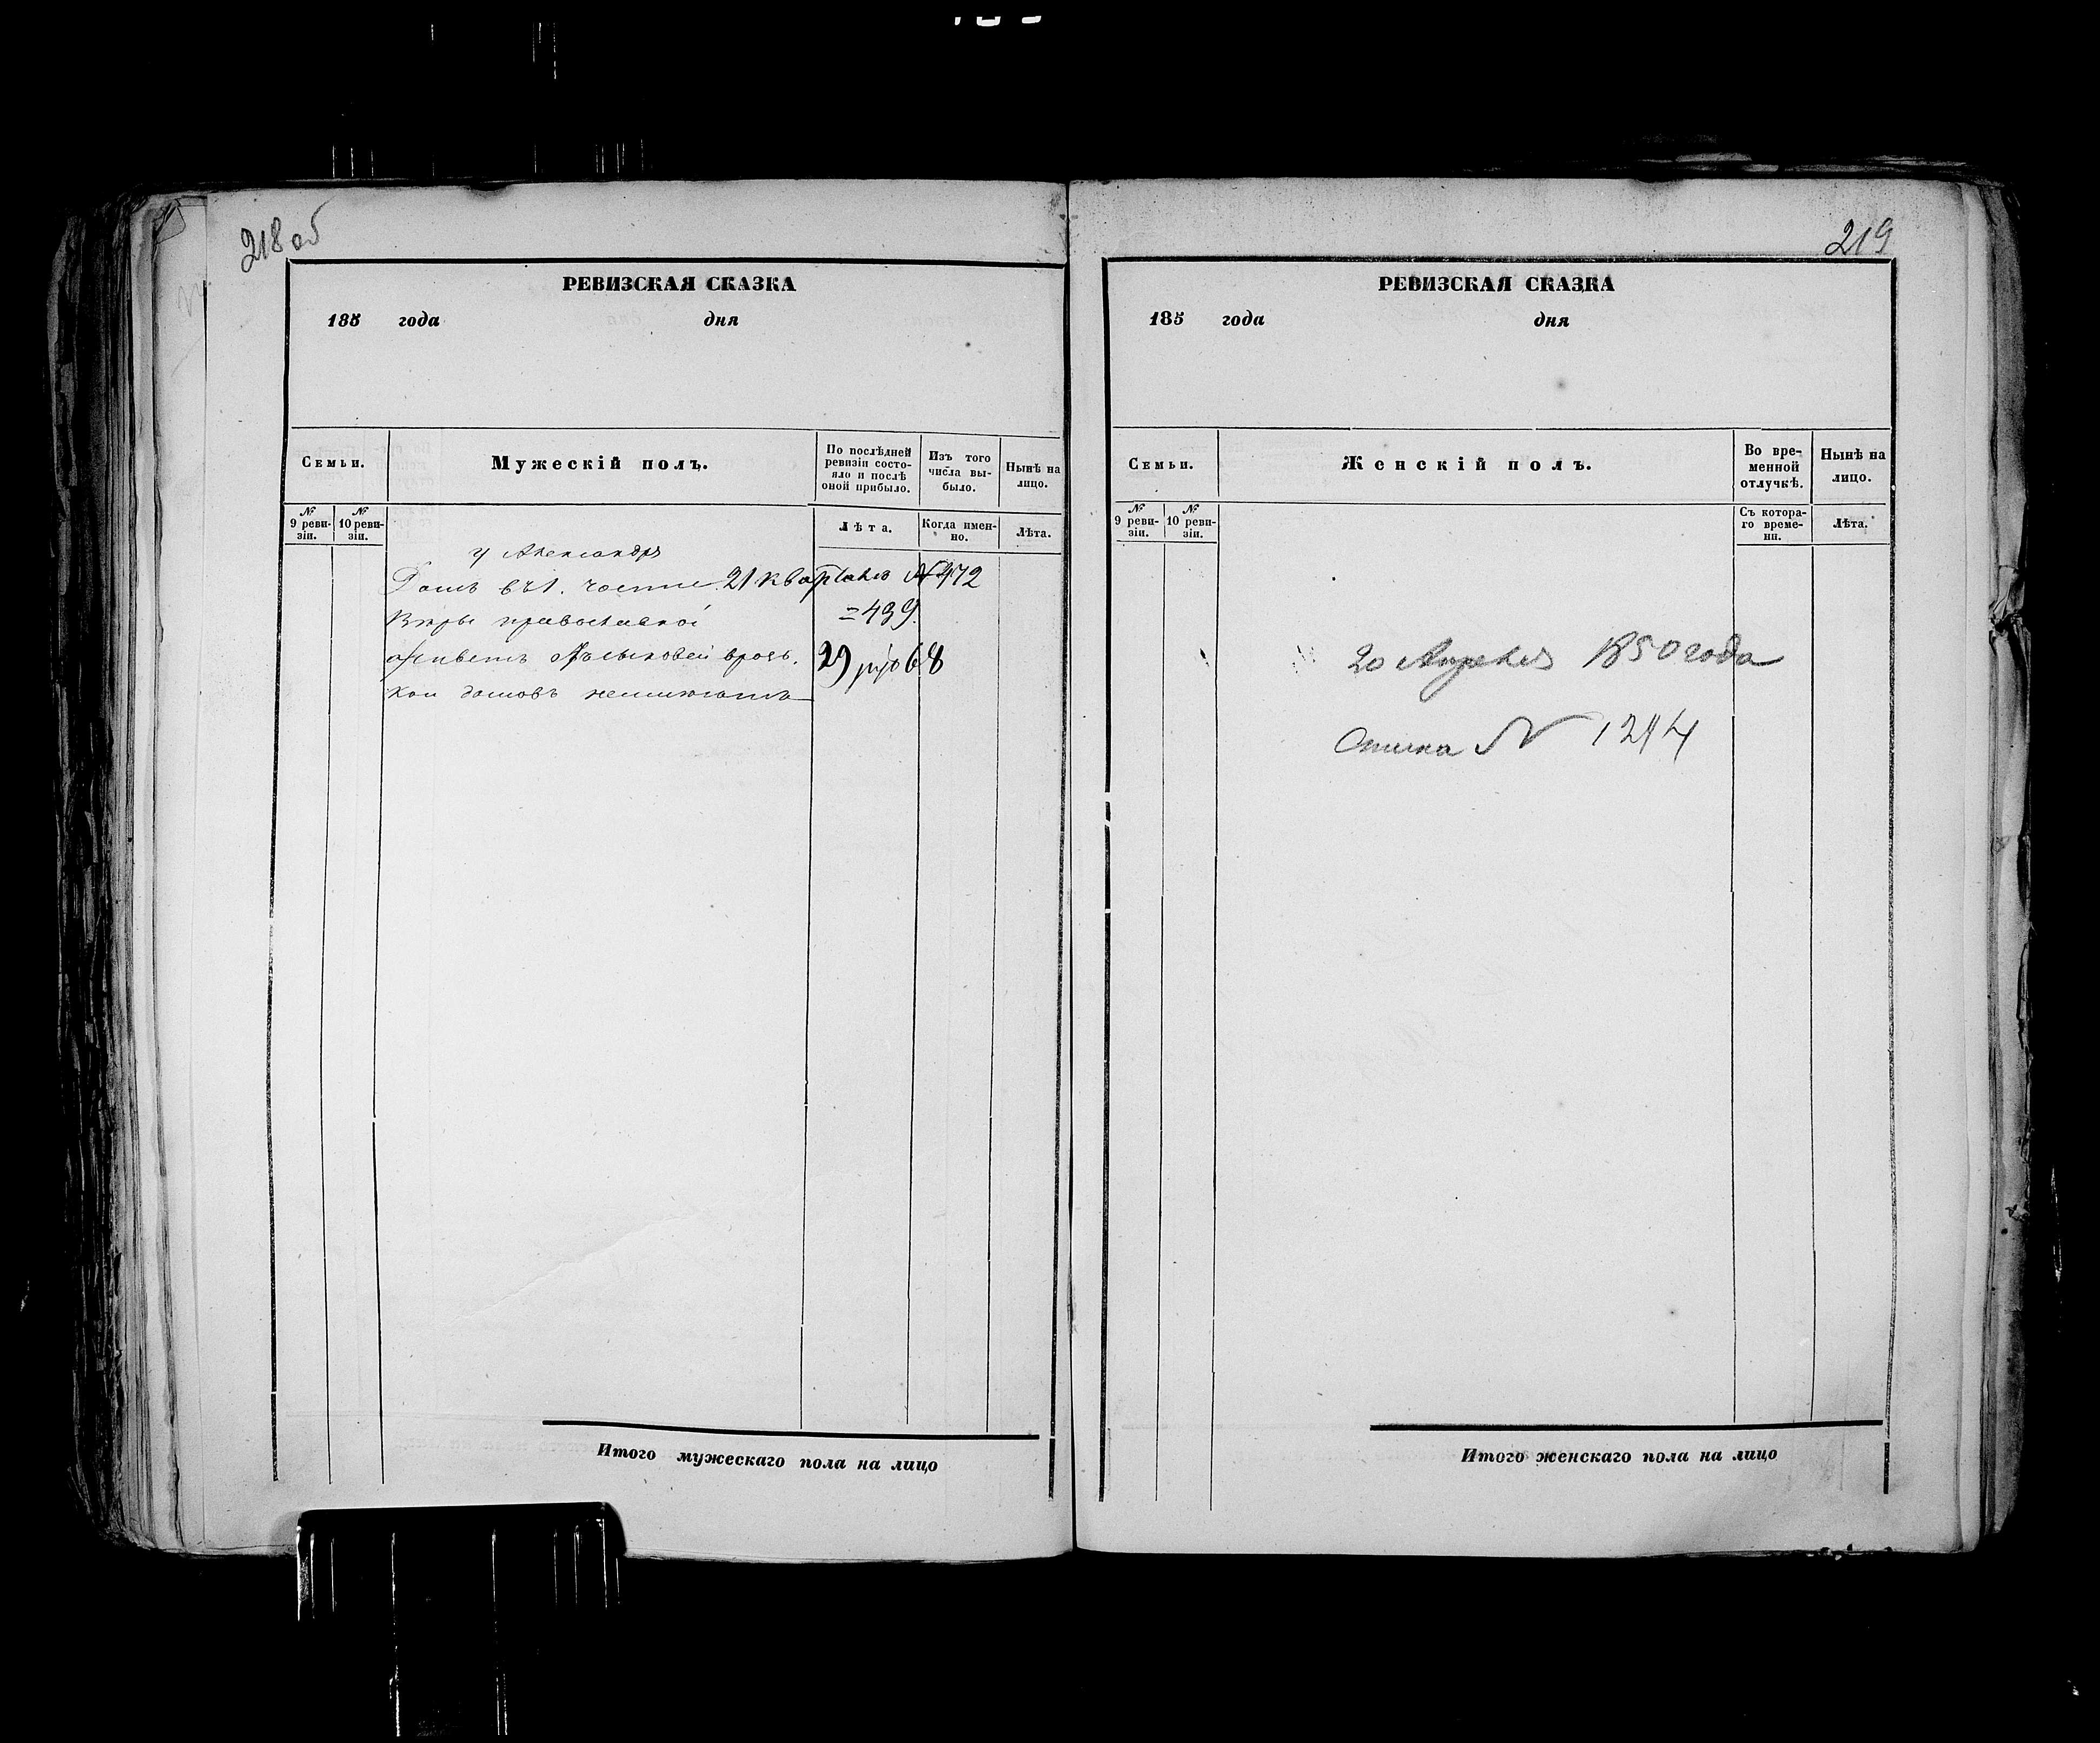 218 об
РЕВИЗСКАЯ СКАЗКА
185 года дня
Семьи.
Мужескій полъ.
По послѣдней ревизіи состо-
яло и послѣ оной прибыло.
Изъ того числа вы-
было.
Нынѣ на лицо.
№ 9 реви-
зіи.
№ 10 реви-
зіи.
Лѣта.
Когда имен-
но.
Лѣта.
у Александръ
Домъ въ 1. части. 21 квартала № 472
= 439.
Вѣры православной
живетъ
домовъ
Итого мужескаго пола на лицо
219
РЕВИЗСКАЯ СКАЗКА
185 года дня
Семьи.
Женскій полъ.
Во вре-
менной отлучкѣ.
Нынѣ на лицо.
№ 9 реви-
зіи.
№ 10 реви-
зіи.
Съ котора-
го време-
ни.
Лѣта.
20 Апреля 1850 года
№
Итого женскаго пола на лицо